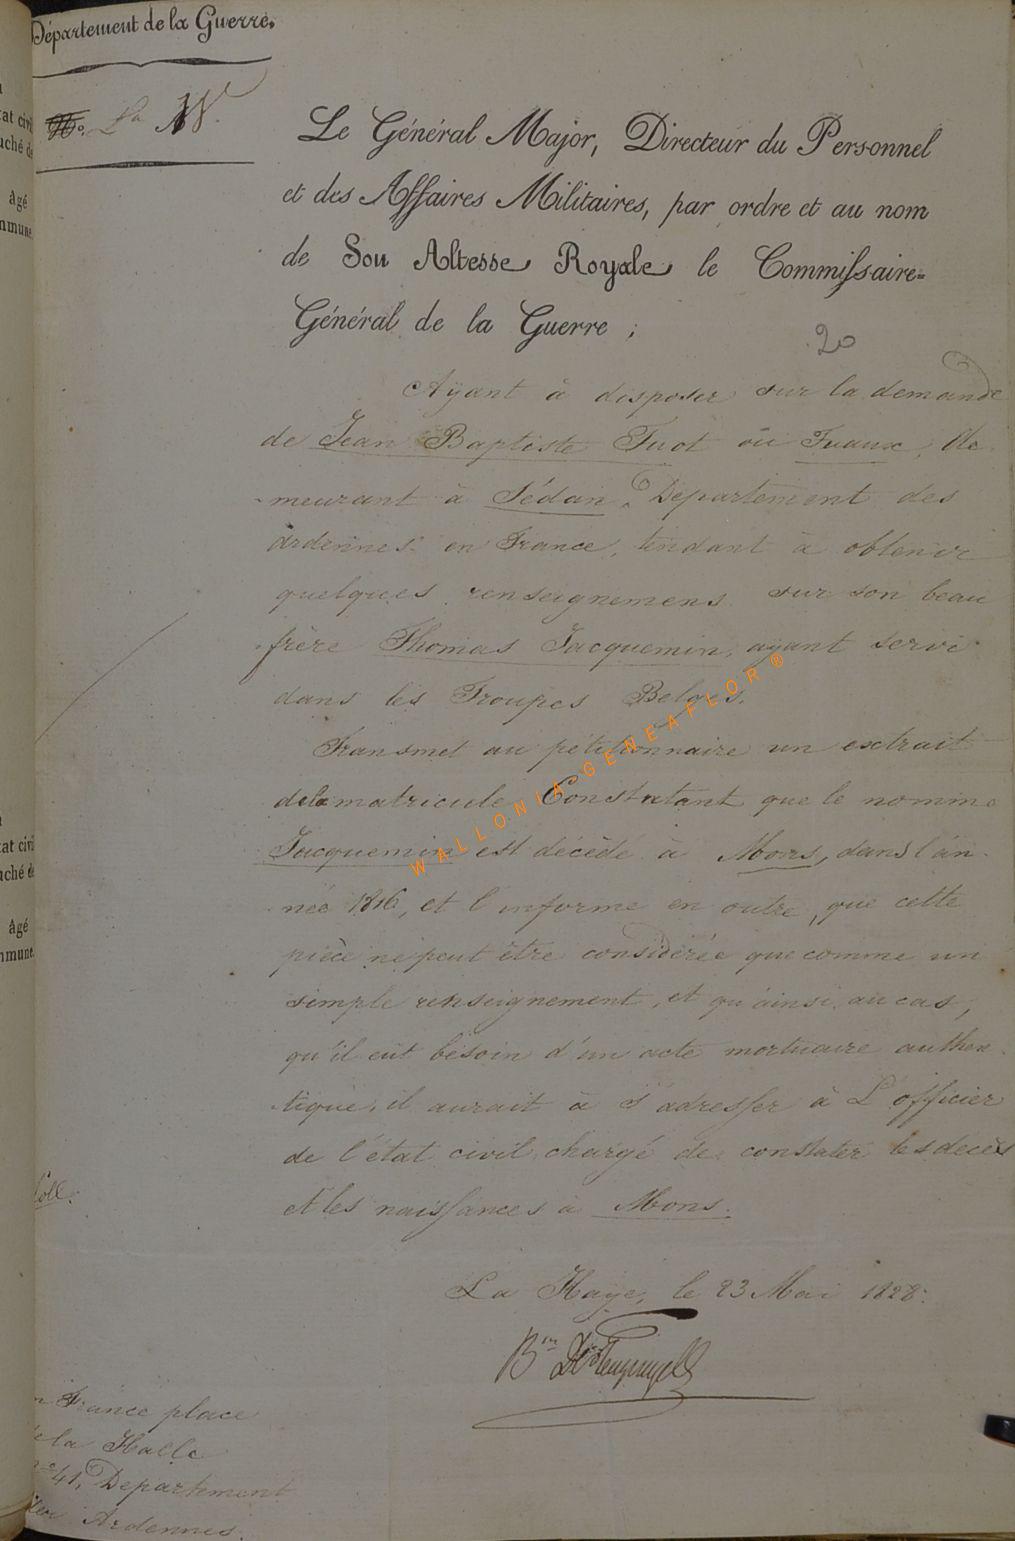 Département de la Guerre.
N.º La W.
Le Général Major, Directeur du Personnel
et des Affaires Militaires, par ordre et au nom
de Son Altesse Royale le Commissaire-
Général de la Guerre ;
20
Ayant à disposer sur la demande
de Jean Baptiste Tuot ou Tuaux, de
meurant à Sédan, Département des
ardennes en France, tendant à obtenir
quelques renseignemens sur son beau
frère Thomas Jacquemin, ayant servi
dans les Troupes Belges.
Transmet au pétitionnaire un extrait
dela matricule Constatant que le nommé
Jacquemin est décédé à Mons, dans l'an
née 1816, et l'informe en outre, que cette
pièce ne peut être considérée que comme un
simple renseignement, et qu'ainsi, au cas,
qu'il eut besoin d'un acte mortuaire authen
tique, il aurait à s'adresser à L'officier
de l'état civil, chargé de constater les décès
et les naissances à Mons.
La Haye, le 23 Mai 1828.
Bon
France place
la Halle
41, Département
Ardennes.
at civil
uché de
âgé
mmune
at civil
uché de
âgé
mmune.
WALLONIA-GENEAFLOR®